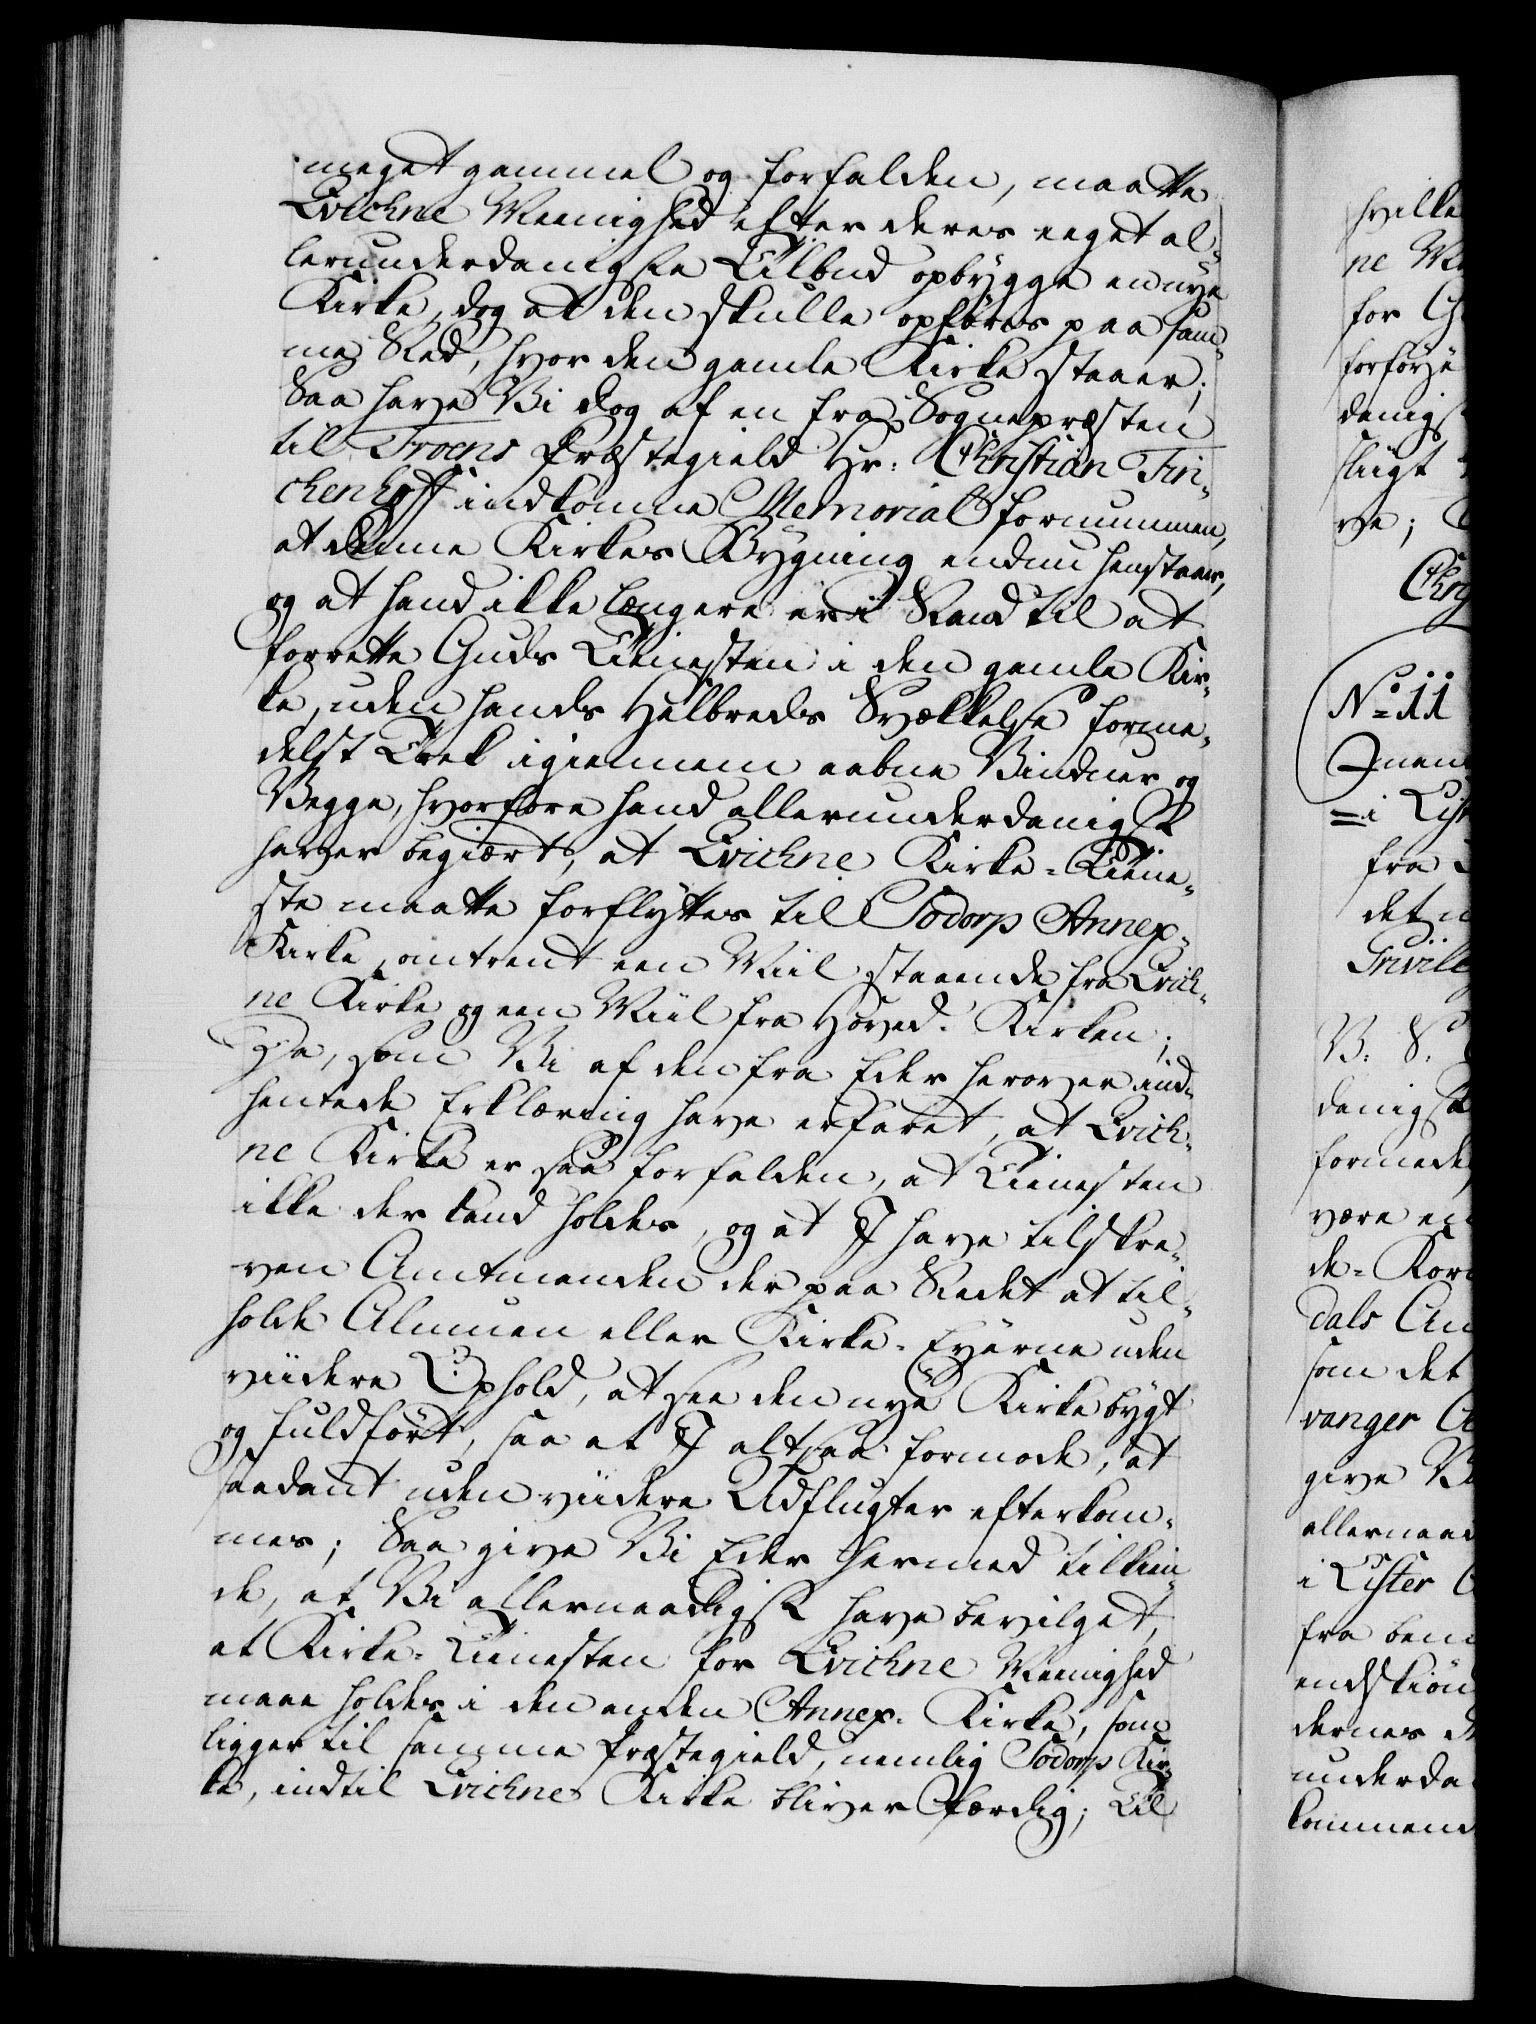 meget gammel og forfalden, maatte
Qvichne Meenighed efter deres eeget al-
lerunderdanigste Tilbud opbygge en nye
Kirke, dog at den skulle opføres paa sam-
me Sted, hvor den gamle Kirke staaer;
Saa have Vi dog af en fra Sognepræsten
til Froens Præstegield Hr: Christian Fin-
chenhoff indkomne Memorial fornummen,
at denne Kirkes Bygning endnu henstaaer,
og at hand ikke længere er i Stand til at
forrette Guds Tienesten i den gamle Kir-
ke, uden hands Helbreds Svækkelse forme-
delst Træk igiennem aabne Vinduer og
Vegge, hvorfore hand allerunderdanigst
haver begiært, at Qvichne Kirke-Tiene-
ste maatte forflyttes til Sodorp Annex-
Kirke, omtrent een Miil staaende fra Qvich-
ne Kirke og een Miil fra Hoved-Kirken;
Da, som Vi af den fra Eder herover ind-
hentede Erklæring have erfaret, at Qvich-
ne Kirke er saa forfalden, at Tienesten
ikke der kand holdes, og at I have tilskre-
ven Amtmanden der paa Stedet at til-
holde Almuen eller Kirke-Eyerne uden
viidere Ophold, at see den nye Kirke bygt
og fuldført, saa at I altsaa formode, at
saadant uden viidere Udflugter efterkom-
mes; Saa give Vi Eder hermed tilkien-
de, at Vi allernaadigst have bevilget,
at Kirke-Tienesten for Qvichne Meenighed
maae holdes i den anden Annex-Kirke, som
ligger til samme Præstegield, nemlig Sodorp Kir-
ke, indtil Qvichne Kirke bliver færdig; Til
hvilke
ne Me
for
danigst
sligt
ve;
No 11
i List
fra
det
Privile
V. S.
danigst
formede
være en
de-
dals Am
som det
vanger
give
allernaad
i Lister
fra ben
endskiøn
dernes
underda
kommend